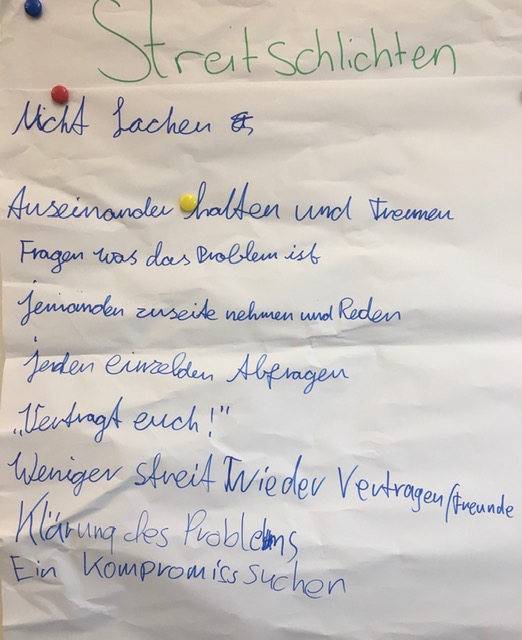 Streitschlichten
Nicht Lachen
Auseinander halten und Trennen
Fragen was das Problem ist
jemanden zuseite nehmen und Reden
jeden einzelden Abfragen
„Vertragt euch!"
Weniger streit Wieder Vertragen/Freunde
Klärung des Problems
Ein Kompromiss suchen